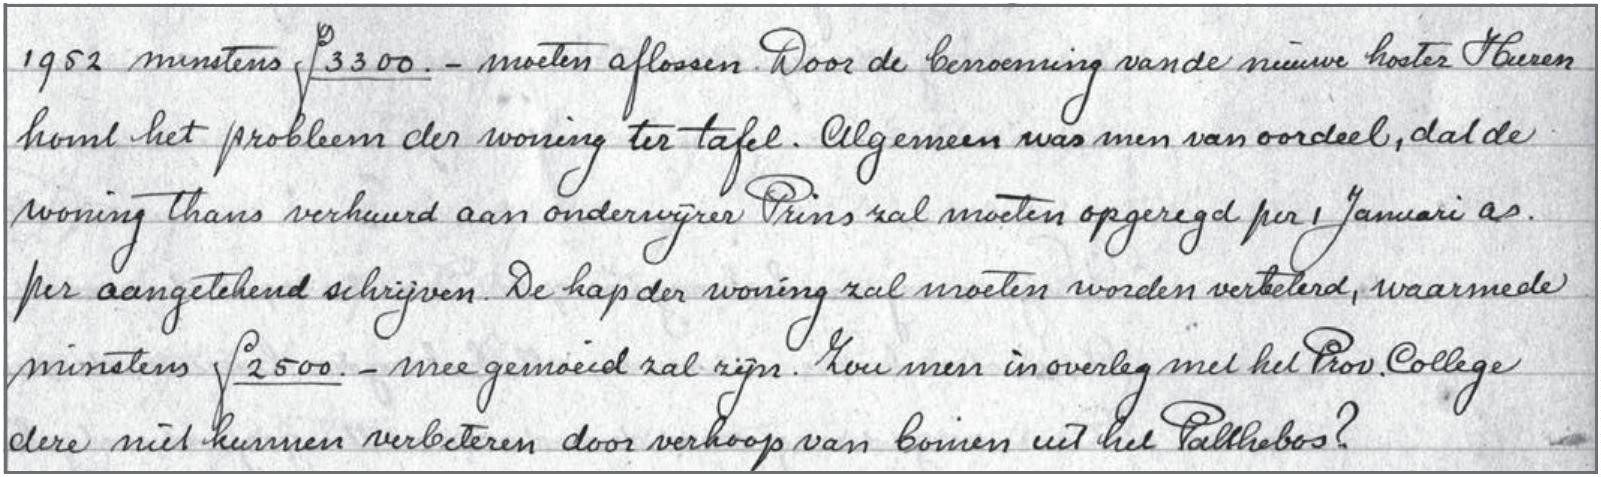 1952 minstens ƒ 3300.- moeten aflossen. Door de benoeming van de nieuwe koster Huzen
komt het probleem der woning ter tafel. Algemeen was men van oordeel, dat de
woning thans verhuurd aan onderwijzer Prins zal moeten opgezegd per 1 Januari as.
per aangetekend schrijven. De kap der woning zal moeten worden verbeterd, waarmede
minstens ƒ 2500.- mee gemoeid zal zijn. Zou men in overleg met het Prov. College
deze niet kunnen verbeteren door verkoop van bomen uit het Palthebos?